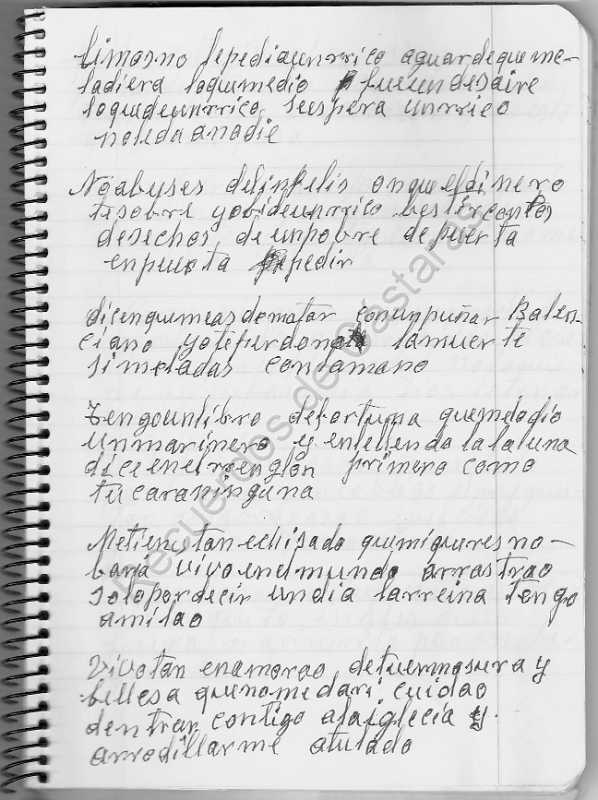 limosno lepediaunrrico aguardequeme-
ladiera loquemedio fueundesaire
loquedeunrrico, seespera unrrico
noledaanadie
Noabuses delinfelis onqueldinero
tesobre yobideunrrico bestircontos
desechos, deunpobre depuerta
enpuerta pedir
dicenquemeasdematar conunpuñar Balen-
ciano yoteperdono lamuerte
simeladas contamano
Tengounlibro defortuna quemelodio
unmarinero y enlellendolalaluna
diceenerrenglon primero como
tucaraninguna
Metienstanechisado quemiqueresno-
bará vivoenelmundo arrastrao
solopordecir undia larreina tengo
amilao
Vivotan enamorao detuermosura y
bellesa quenomedari cuidao
dentrar contigo alaiglecia y
arrodillarme atulado
Recuerdos de Castaras